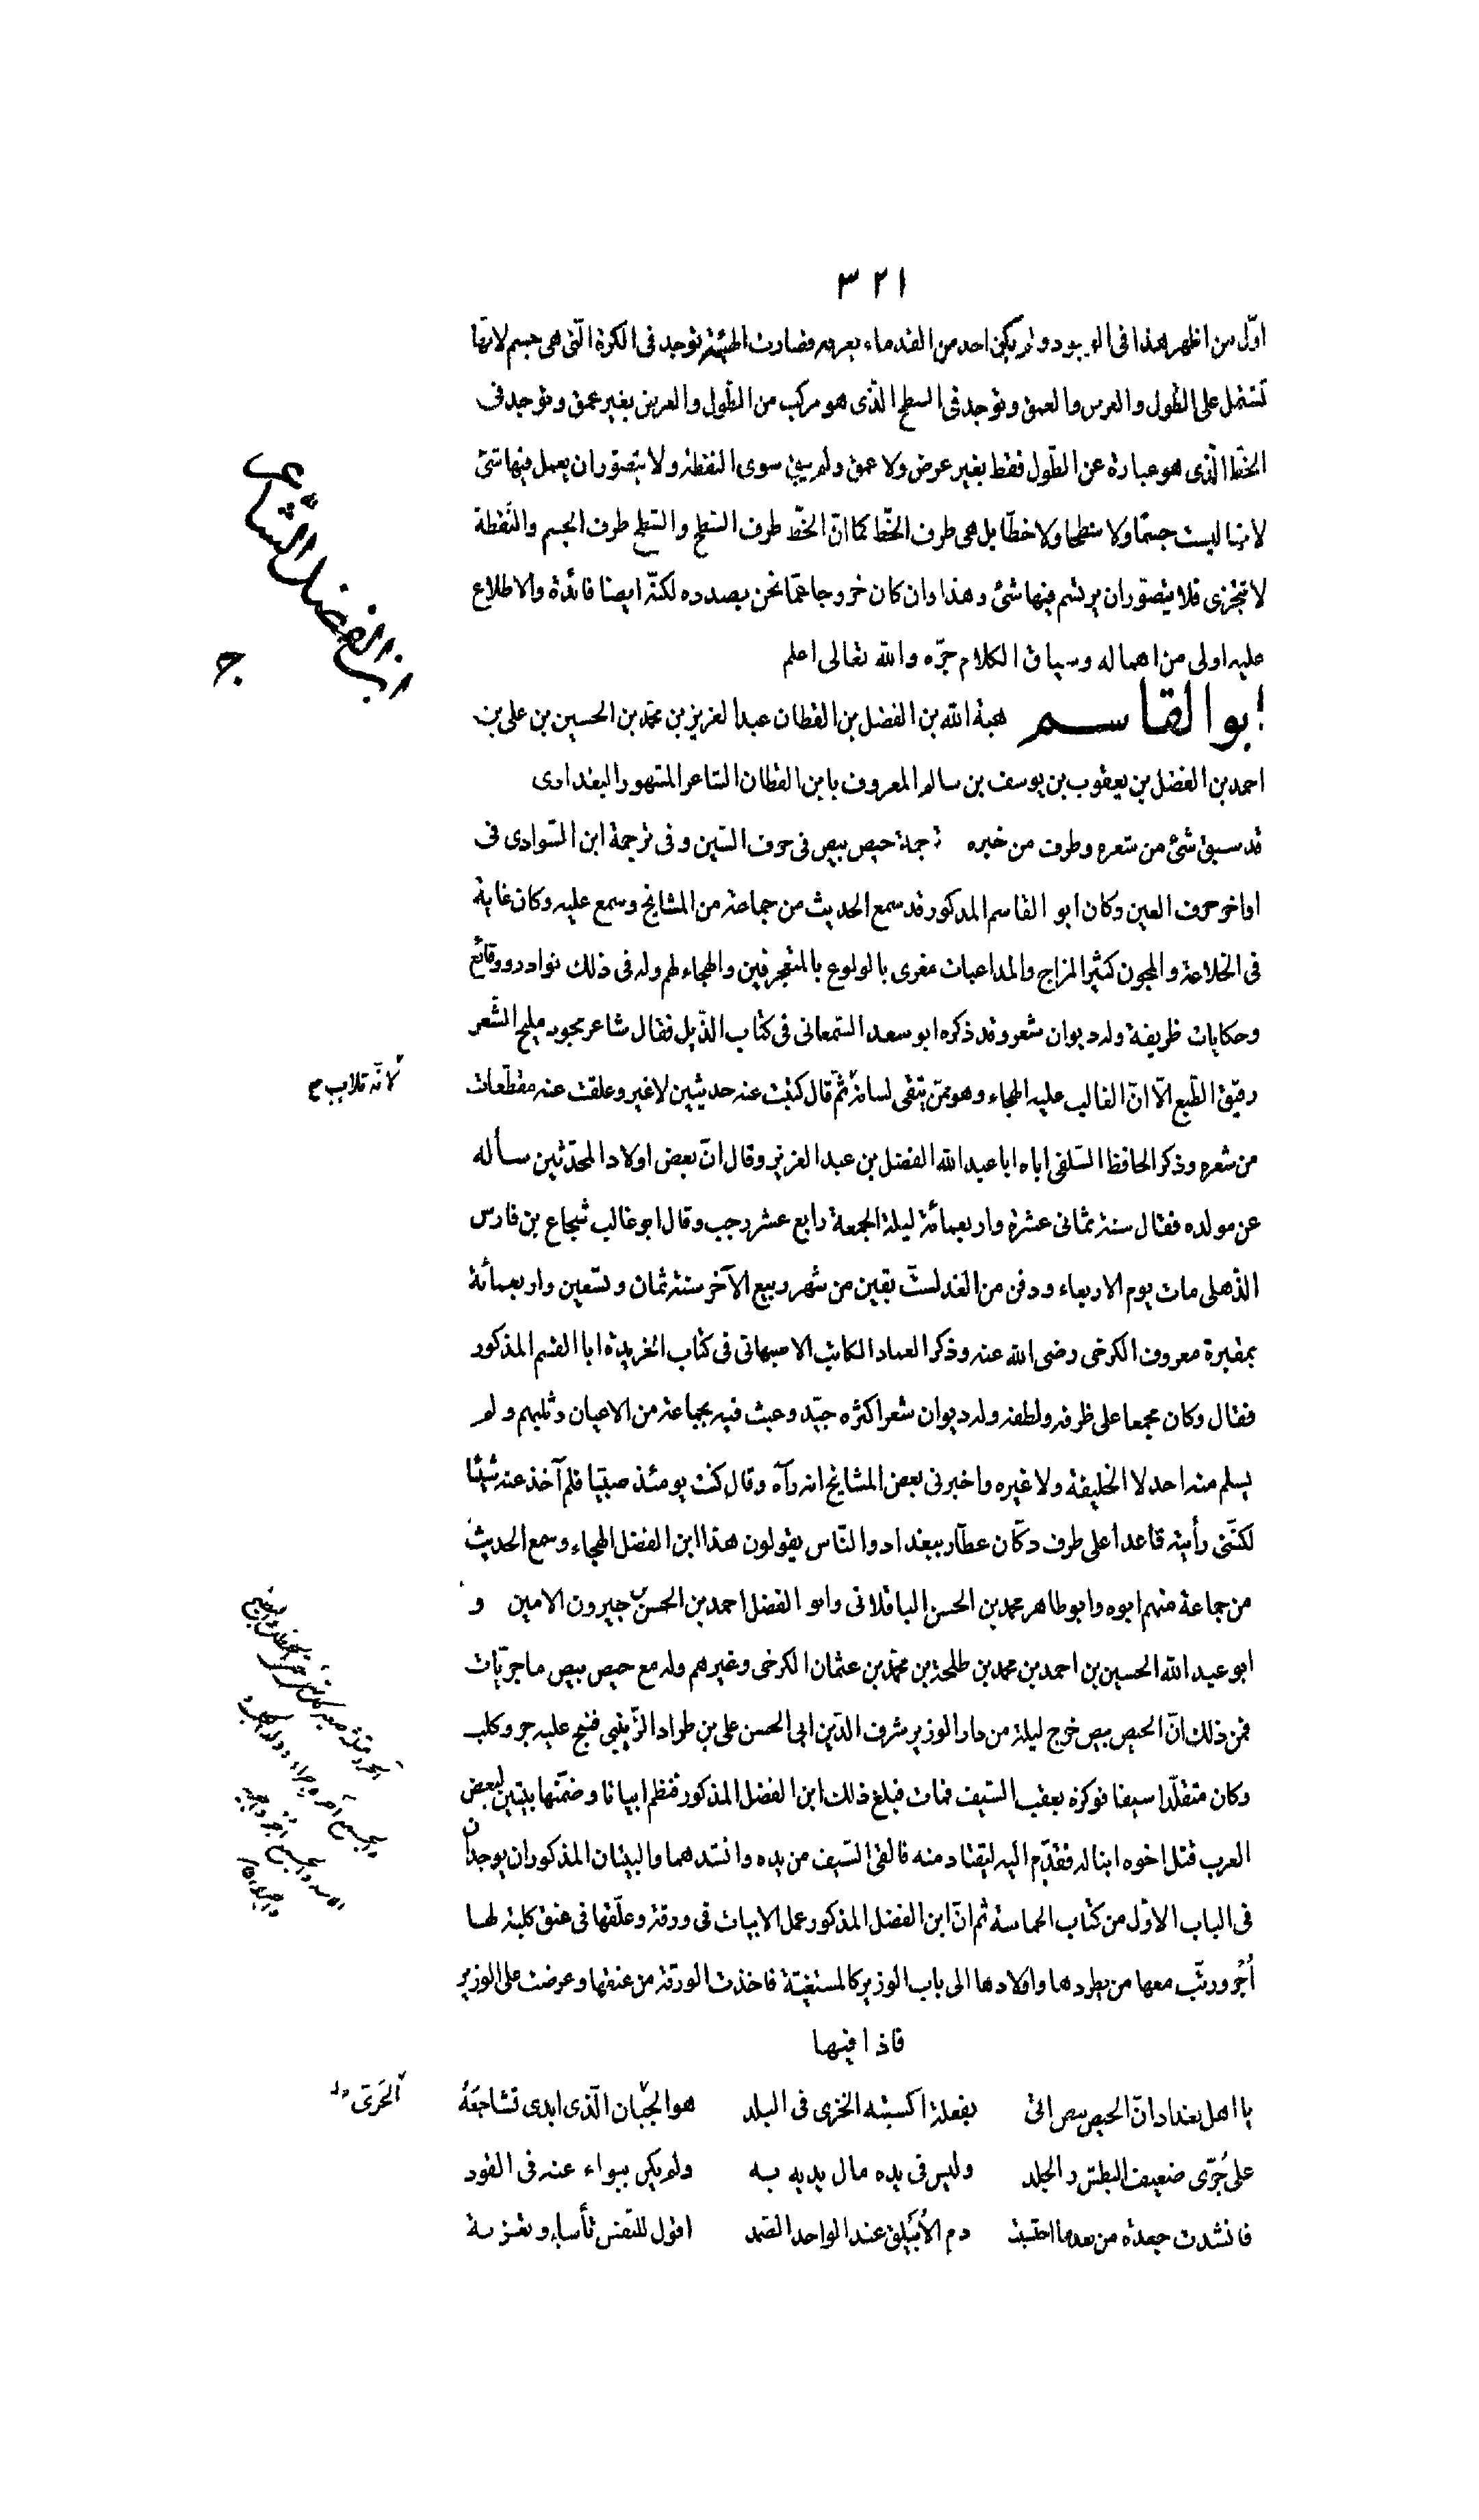 ٣٢١
اوّل من اظهر هذا فى الوجود ولم يكن احد من القدماء يعرفه فصارت الهيئة توجد فى الكرة الّتى هى جسم لانّها
تشتمل على الطّول والعرض والعمق وتوجد فى السطح الذّى هو مركب من الطّول والعرض بغير عمق وتوجد فى
الخطّ الّذى هو عبارة عن الطّول فقط بغير عرض ولا عمق ولم يبق سوى النقطة ولا يتصوّر ان يعمل فيها شئ
لانها ليست جسمًا ولا سطحا ولا خطّا بل هى طرف الخطّ كما انّ الخطّ طرف السّطح والسّطح طرف الجسم والنّقطة
لا تتجزى فلا يتصوّر ان يرتسم فيها شئ وهذا وان كان خروجا عمّا نحن بصدده لكنّه ايضا فائدة والاطلاع
عليه اولى من اهماله وسياق الكلام جرّه والله تعالى اعلم
ابن الفضل الشاعر
ابو القاسم هبة الله بن الفضل بن القطان عبد العزيز بن محمّد بن الحسين بن على بن
احمد بن الفضل بن يعقوب بن يوسف بن سالم المعروف بابن القطان الشاعر المشهور البغدادى
قد سبق شئ من شعره وطرف من خبره ترجمة حيص بيص فى حرف السّين وفى ترجمة ابن السّوادى فى
اواخر حرف العين وكان ابو القاسم المذكور قد سمع الحديث من جماعة من المشايخ وسمع عليه وكان غاية
فى الخلاعة والمجون كثير المزاح والمداعبات مغرى بالولوع بالمتعجرفين والهجاء لهم وله فى ذلك نوادر ووقائع
وحكايات ظريفة وله ديوان شعر وقد ذكره ابو سعد السّمعانى فى كتاب الذّيل فقال شاعر مجود مليح الشّعر
رقيق الطّبع الّا انّ الغالب عليه الهجاء وهو ممّن يتّقى لسانه ثمّ قال كتبت عنه حديثين لا غير وعلقت عنه مقطّعات
من شعره وذكر الحافظ السّلفى اباه ابا عبد الله الفضل بن عبد العزيز وقال انّ بعض اولاد المحدّثين سأله
عن مولده فقال سنة ثمانى عشرة واربعمائة ليلة الجمعة رابع عشر رجب وقال ابو غالب شجاع بن فارس
الذهلى مات يوم الاربعاء ودفن من الغد لستّ بقين من شهر ربيع الآخر سنة ثمان وتسعين واربعمائة
بمقبرة معروف الكرخى رضى الله عنه وذكر العماد الكاتب الاصبهانى فى كتاب الخريدة ابا القسم المذكور
فقال وكان مجمعا على ظرفه ولطفه وله ديوان شعر اكثره جيّد وعبث فيه بجماعة من الاعيان وثلبهم ولم
يسلم منه احد لا الخليفة ولا غيره واخبرنى بعض المشايخ انه رآه وقال كنت يومئذ صبيّا فلم آخذ عنه شيئا
لكنّنى رأيته قاعدا على طرف دكّان عطّار ببغداد والنّاس يقولون هذا ابن الفضل الهجاء وسمع الحديث
من جماعة منهم ابوه وابو طاهر محمد بن الحسن الباقلانى وابو الفضل احمد بن الحسن خيرون الامين و
ابو عبد الله الحسين بن احمد بن محمد بن طلحة بن محمّد بن عثمان الكرخى وغيرهم وله مع حيص بيص ماجريّات
فمن ذلك انّ الحيص بيص خرج ليلة من دار الوزير شرف الدّين ابى الحسن على بن طراد الزّينبى فنبح عليه جرو كلب
وكان متقلّدا سيفا فوكزه بعقب السّيف فمات فبلغ ذلك ابن الفضل المذكور فنظم ابياتا وضمّنها بيتين لبعض
العرب قتل اخوه ابنا له فقدّم اليه ليقتاد منه فالقى السّيف من يده وانشدهما والبيتان المذكوران يوجدان
فى الباب الاوّل من كتاب الحماسة ثم انّ ابن الفضل المذكور عمل الابيات فى ورقة وعلّقها فى عنق كلبة لها
أجْرٍ ورتّب معها من يطردها واولادها الى باب الوزير كالمستغيثة فاخذت الورقة من عنقها وعرضت على الوزير
فاذا فيها
يا اهل بغداد انّ الحيص بيص اتى بفعلة اكسبته الخزى فى البلد هو الجبان الّذى ابدى تشاجعه
الجرى
على جُرَىّ ضعيف البطش والجلد وليس فى يده مال يديه به ولم يكن ببواء عنه فى القود
فانشدت جعدة من بعد ما احتسبت دم الأُبَيْلِق عند الواحد الصّمد اقول للنّفس تأساء وتعزية